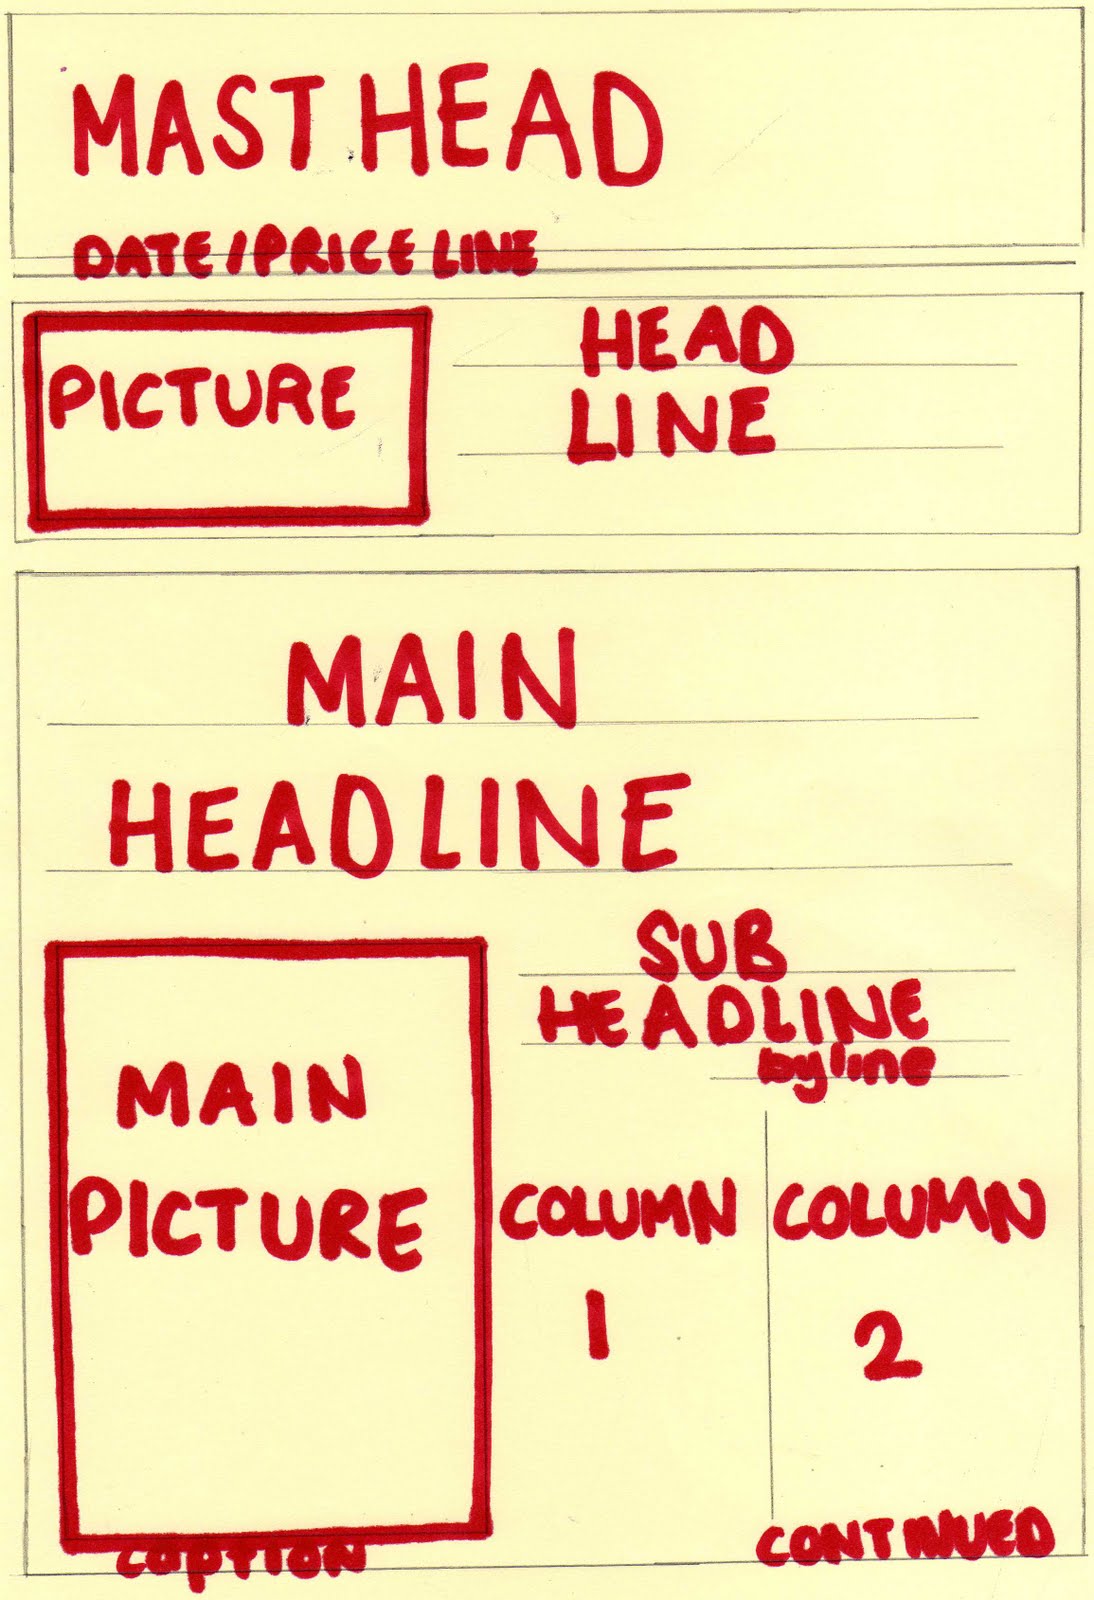 MASTHEAD
DATE/PRICE LINE
PICTURE
HEAD
LINE
MAIN
HEADLINE
SUB
HEADLINE
byline
MAIN
PICTURE
COLUMN
1
COLUMN
2
caption
CONTINUED